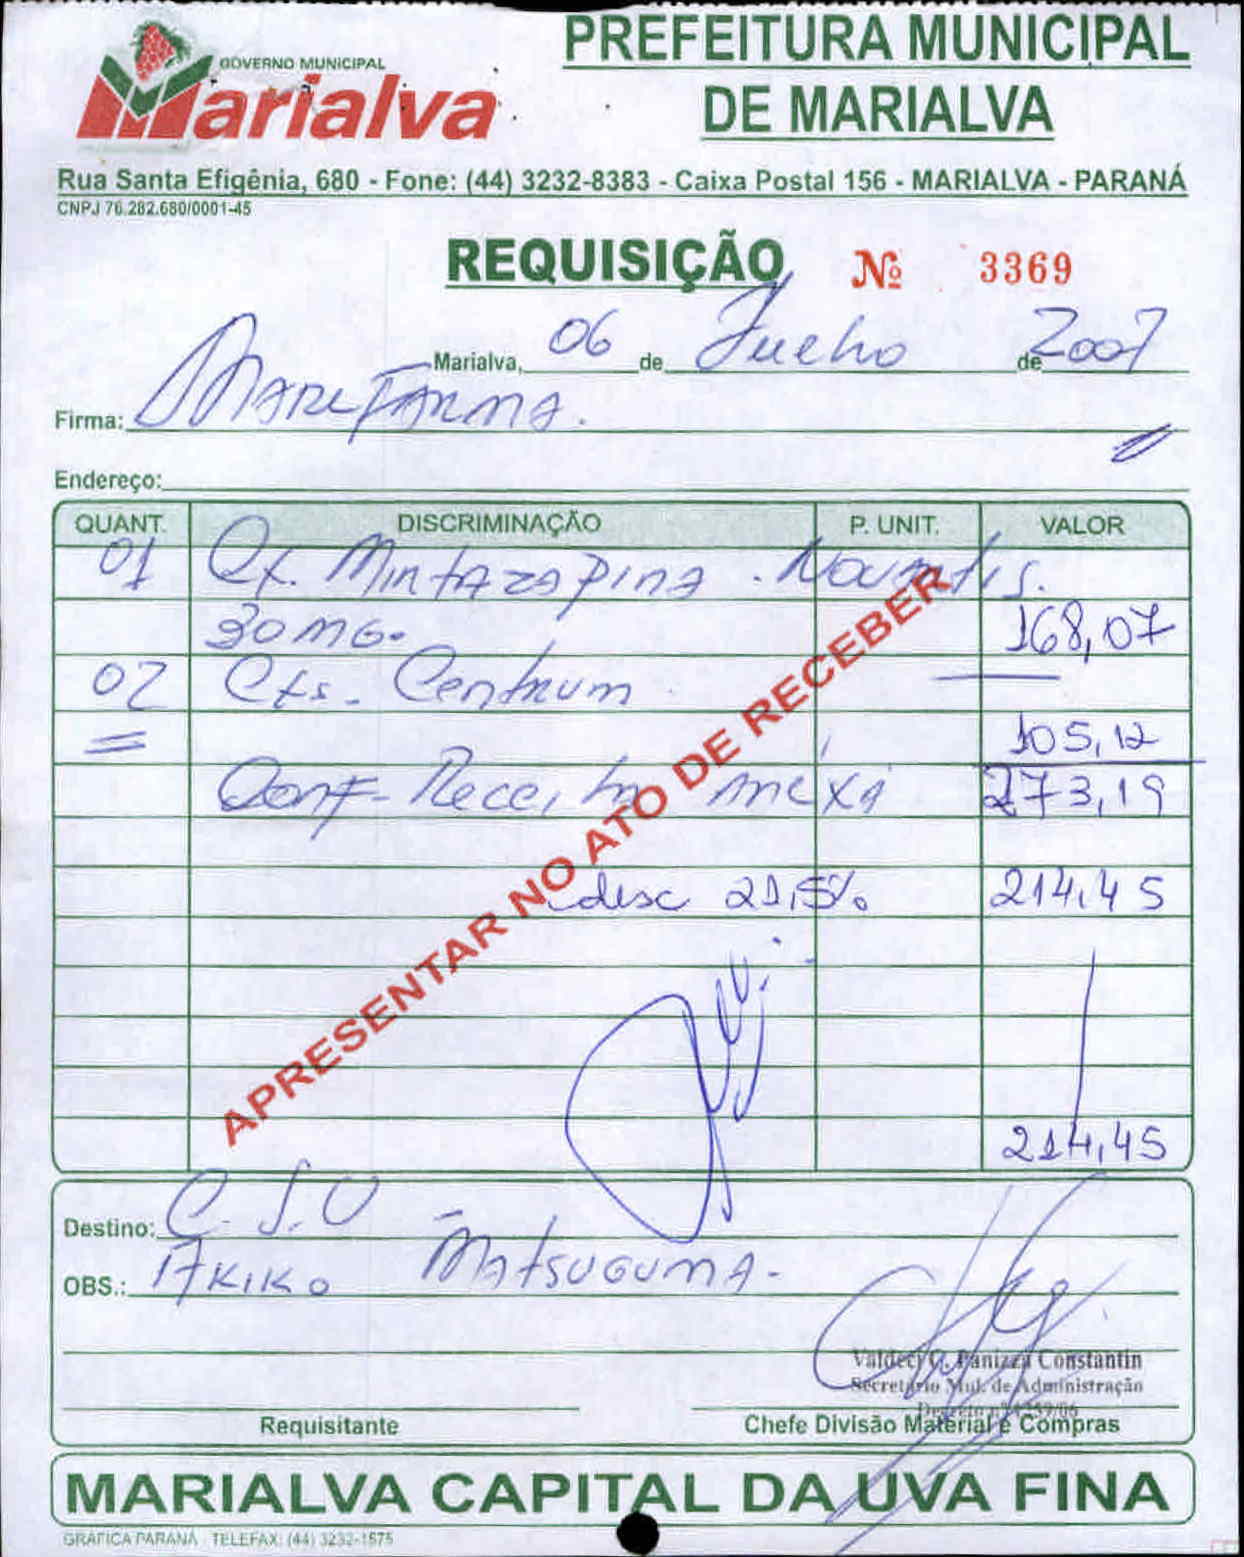 GOVERNO MUNICIPAL
Marialva
PREFEITURA MUNICIPAL
DE MARIALVA
Rua Santa Efigênia, 680 - Fone: (44) 3232-8383 - Caixa Postal 156 - MARIALVA - PARANÁ
CNPJ 76.282.680/0001-45
REQUISIÇÃO Nº 3369
Marialva, 06 de Julho de 2007
Firma: Marefarma.
Endereço:
QUANT. DISCRIMINAÇÃO P. UNIT. VALOR
01 Cx. Mirtazapina . Novartis.
30 MG. 168,07
02 Cxs. Centrum
105,12
Conf. Receita anexa 273,19
desc 21,5% 214,45
APRESENTAR NO ATO DE RECEBER
214,45
Destino: C.S.U - 
OBS.: Akiko Matsuguma.
Valdeci C. Panizza Constantin
Secretário Mul. de Administração
Requisitante Chefe Divisão Material e Compras
MARIALVA CAPITAL DA UVA FINA
GRÁFICA PARANÁ TELEFAX: (44) 3232-1575